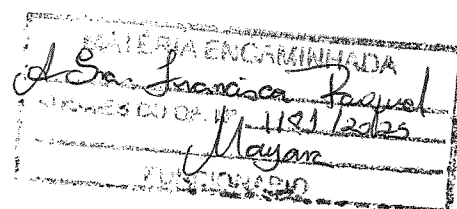 MATÉRIA ENCAMINHADA
A Sra. Francisca Raquel
1181/2025
Mayara
FUNCIONÁRIO